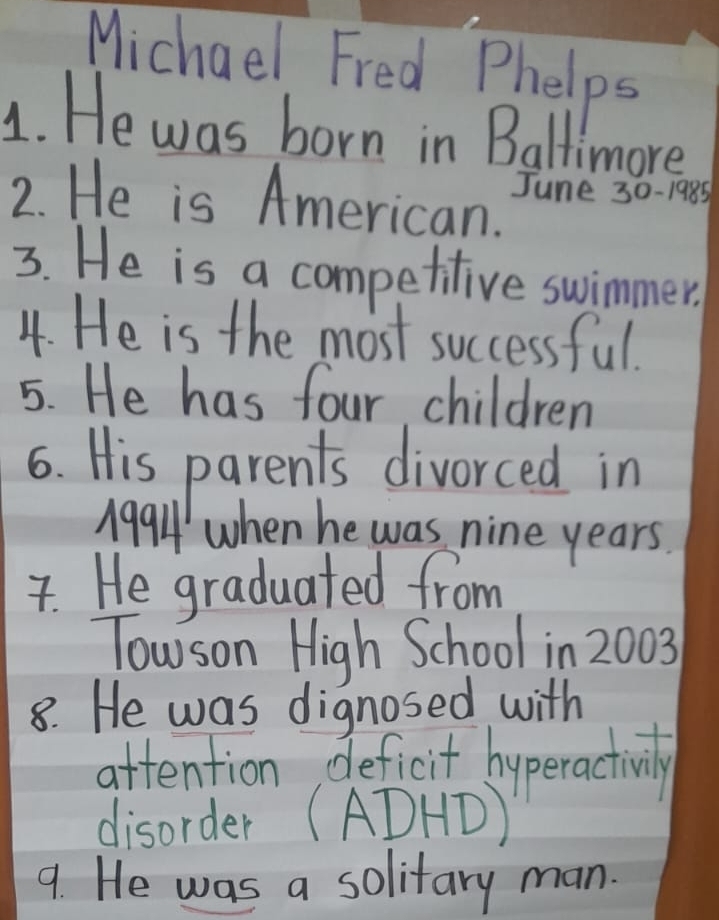 Michael Fred Phelps
1. He was born in Baltimore
June 30-1985
2. He is American.
3. He is a competitive swimmer.
4. He is the most successful.
5. He has four children
6. His parents divorced in
1994 when he was nine years.
7. He graduated from
Towson High School in 2003
8. He was dignosed with
attention deficit hyperactivity
disorder (ADHD)
9. He was a solitary man.